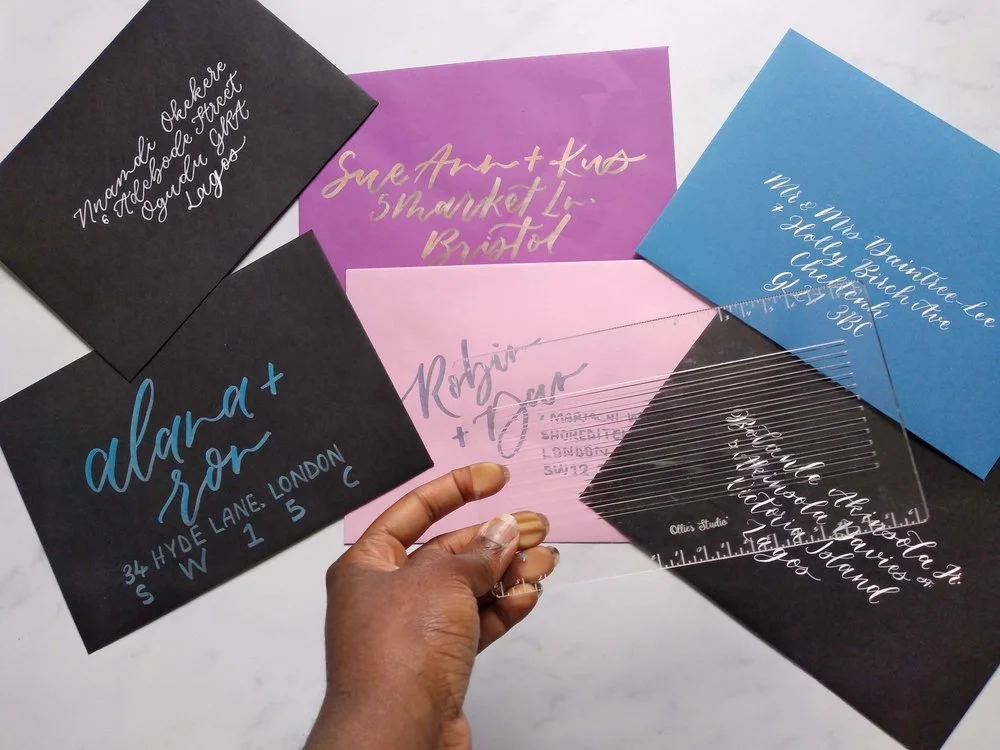 Nnamdi Okekere
6 Adebode Street
Ogudu GRA
Lagos
Sue Ann + Kus
5 Market Ln.
Bristol
Mr & Mrs Daintree-Lee
7 Holly Birch Ave
Cheltenh
3BC
alana +
ron
34 HYDE LANE. LONDON
S W 1 5 C
Robin
+ Dav
MARIACHI W
SHOREDITC
LONDON
SW12
Ollie's Studio
Bolanle Akinsola Jr.
7 Akinsola Davies St.
Victoria Island
Lagos